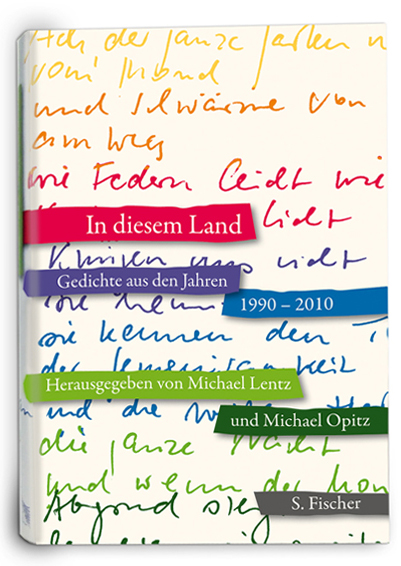 Ach der ganze Garten
vom Mond
und Schwärme von
am Weg
wie Federn leicht wie
In diesem Land
licht
uns nicht
Gedichte aus den Jahren
1990 – 2010
sie kennen den
der Gemeinsamkeit
Herausgegeben von Michael Lentz
und die
und Michael Opitz
die ganze Nacht
und wenn der
S. Fischer
Abgrund